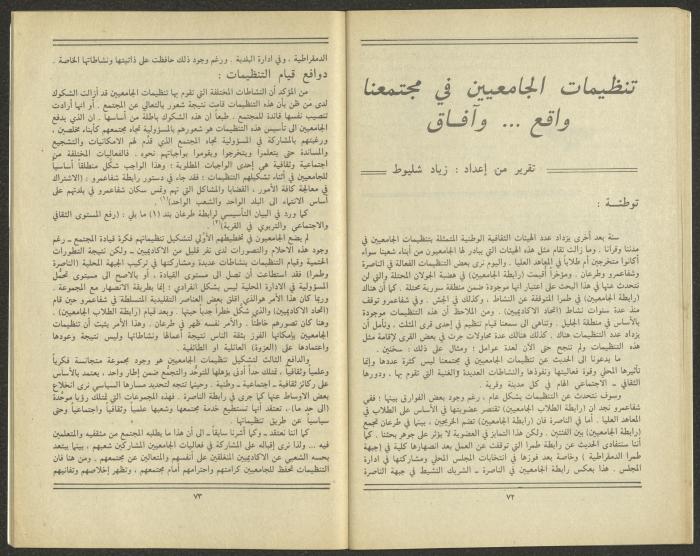 تنظيمات الجامعيين في مجتمعنا
واقع ... وآفـاق
تقرير من إعداد : زياد شليوط
توطئـة :
سنة بعد أخرى يزداد عدد الهيئات الثقافية الوطنية المتمثلة بتنظيمات الجامعيين في
مدننا وقرانا . وما زالت تقام مثل هذه الهيئات التي يبادر لها الجامعيون من أبناء شعبنا سواء
أكانوا متخرجين أم طلاباً في المعاهد العليا . واليوم نرى بعض التنظيمات الفعالة في الناصرة
وشفاعمرو وطرعان . ومؤخراً أقيمت (رابطة الجامعيين) في هضبة الجولان المحتلة والتي لن
نتحدث عنها في هذا البحث على اعتبار انها موجودة ضمن منطقة سورية محتلة . كما أن هناك
(رابطة الجامعيين) في طمرا المتوقفة عن النشاط ، وكذلك في الجش . وفي شفاعمرو توقف
منذ عدة سنوات نشاط (اتحاد الاكاديميين) . ومن الملاحظ أن هذه التنظيمات موجودة
بالأساس في منطقة الجليل . وتناهى الى سمعنا قيام تنظيم في احدى قرى المثلث . ونأمل أن
يزداد عدد التنظيمات هناك . كذلك هنالك عدة محاولات جرت في بعض القرى لإقامة مثل
هذه التنظيمات ولم تنجح حتى الآن لعدة عوامل ؛ ومثال على ذلك : سخنين .
ما يدعونا الى الحديث عن تنظيمات الجامعيين في مجتمعنا ليس كثرة عددها وإنما
تأثيرها المحلي وقوة فعاليتها ونفوذها والنشاطات العديدة والغنية التي تقوم بها ، ودورها
الثقافي ـ الاجتماعي الهام في كل مدينة وقرية .
وسوف نتحدث عن التنظيمات بشكل عام ، رغم وجود بعض الفوارق بينها ؛ ففي
شفاعمرو نجد ان (رابطة الطلاب الجامعيين) تقتصر عضويتها في الأساس على الطلاب في
المعاهد العليا . أما في الناصرة فان (رابطة الجامعيين) تضم الخريجين ، بينما في طرعان تجمع
(رابطة الجامعيين) بين الفئتين . ولكن هذا التمايز في العضوية لا يؤثر على جوهر بحثنا . كما
أننا سنتفادى الحديث عن رابطة طمرا التي توقفت عن العمل بعد انصهارها كلية في (جبهة
طمرا الدمقراطية) وخاصة بعد فوزها في انتخابات المجلس المحلي ومشاركتها في ادارة
المجلس . هذا بعكس رابطة الجامعيين في الناصرة ـ الشريك النشيط في جبهة الناصرة
٧٢
الدمقراطية ، وفي ادارة البلدية . ورغم وجود ذلك حافظت على ذاتيتها ونشاطاتها الخاصة .
دوافع قيام التنظيمات :
من المؤكد أن النشاطات المختلفة التي تقوم بها تنظيمات الجامعيين قد أزالت الشكوك
لدى من ظن بأن هذه التنظيمات قامت نتيجة شعور بالتعالي عن المجتمع . أو انها أرادت
تنصيب نفسها قائدة للمجتمع . طبعاً ان هذه الشكوك باطلة من أساسها . ان الذي يدفع
الجامعيين الى تأسيس هذه التنظيمات هو شعورهم بالمسؤولية تجاه مجتمعهم كأبناء مخلصين ،
ورغبتهم بالمشاركة في مسؤولية تجاه المجتمع الذي قدّم لهم الامكانيات والتشجيع
والمساندة حتى يتعلموا ويتخرجوا ويقوموا بواجباتهم نحوه . فالفعاليات المختلفة من
اجتماعية وثقافية هي إحدى الواجبات المطلوبة ؛ وهذا الواجب شكّل منطلقاً أساسياً
للجامعيين في أثناء تشكيلهم التنظيمات ؛ فقد جاء في دستور رابطة شفاعمرو : (الاشتراك
في معالجة كافة الأمور ، القضايا والمشاكل التي تهم وتمس سكان شفاعمرو في بلدتهم على
أساس الانتماء الى البلد الواحد والشعب الواحد)(١) .
كما ورد في البيان التأسيسي لرابطة طرعان بند (١) ما يلي : (رفع المستوى الثقافي
والاجتماعي والتربوي في القرية)(٢)
لم يضع الجامعيون في تخطيطهم الأولي لتشكيل تنظيماتهم فكرة قيادة المجتمع ـ رغم
وجود هذه الاحلام والتصورات لدى نفر قليل من الاكاديميين ـ ولكن نتيجة التطورات
الحتمية وقيام التنظيمات بنشاطات عديدة ومشاركتها في تركيب الجبهة المحلية (الناصرة
وطمرا) فقد استطاعت أن تصل الى مستوى القيادة ، أو بالاصح الى مستوى تحمُّل
المسؤولية في الادارة المحلية ليس بشكل انفرادي ؛ إنما بطريقة الانصهار مع المجموعة .
وربما كان هذا الأمر هو الذي اقلق بعض العناصر التقليدية المتسلطة في شفاعمرو حين قام
(اتحاد الاكاديميين) والذي شكل خطراً جدياً حينها . وبعد قيام (رابطة الطلاب الجامعيين) .
وهنا كان تصورهم خاطئاً . والأمر نفسه ظهر في طرعان . وهذا الأمر يثبت أن تنظيمات
الجامعيين بإمكانها الفوز بثقة الناس نتيجة أعمالها ونشاطاتها وليس نتيجة وعودها
واعتمادها على (العزوة) العائلية أو الطائفية .
والدافع الثالث لتشكيل تنظيمات الجامعيين هو وجود مجموعة متجانسة فكرياً
وعلمياً وثقافياً ، تمتلك حداً أدنى يؤهلها للتوحُّد والتجمع ضمن إطار واحد ، يعتمد بالأساس
على ركائز ثقافية ـ اجتماعية ـ وطنية . وحينها تتجه لتحديد مسارها السياسي نرى انخلاع
بعض الاوساط عنها كما جرى في رابطة الناصرة . فهذه المجموعات التي تمتلك رؤيا موحَّدة
(الى حد ما) ، تعتقد أنها تستطيع خدمة مجتمعها وشعبها علمياً وثقافياً واجتماعياً وحتى
سياسياً عن طريق تنظيماتها .
كما اننا نعتقد ـ وكما أشرنا سابقاً ـ الى أن هذا ما يطلبه المجتمع من مثقفيه والمتعلمين
فيه ... ولذا نرى إقباله على المشاركة في فعاليات الجامعيين المشاركين شعبهم ، بينما يبتعد
بحسه الشعبي عن الاكاديميين المنغلقين على أنفسهم والمتعالين عن مجتمعهم . ومن هنا فان
التنظيمات تحفظ للجامعيين كرامتهم واحترامهم أمام مجتمعهم ، وتظهر إخلاصهم وتفانيهم
٧٣